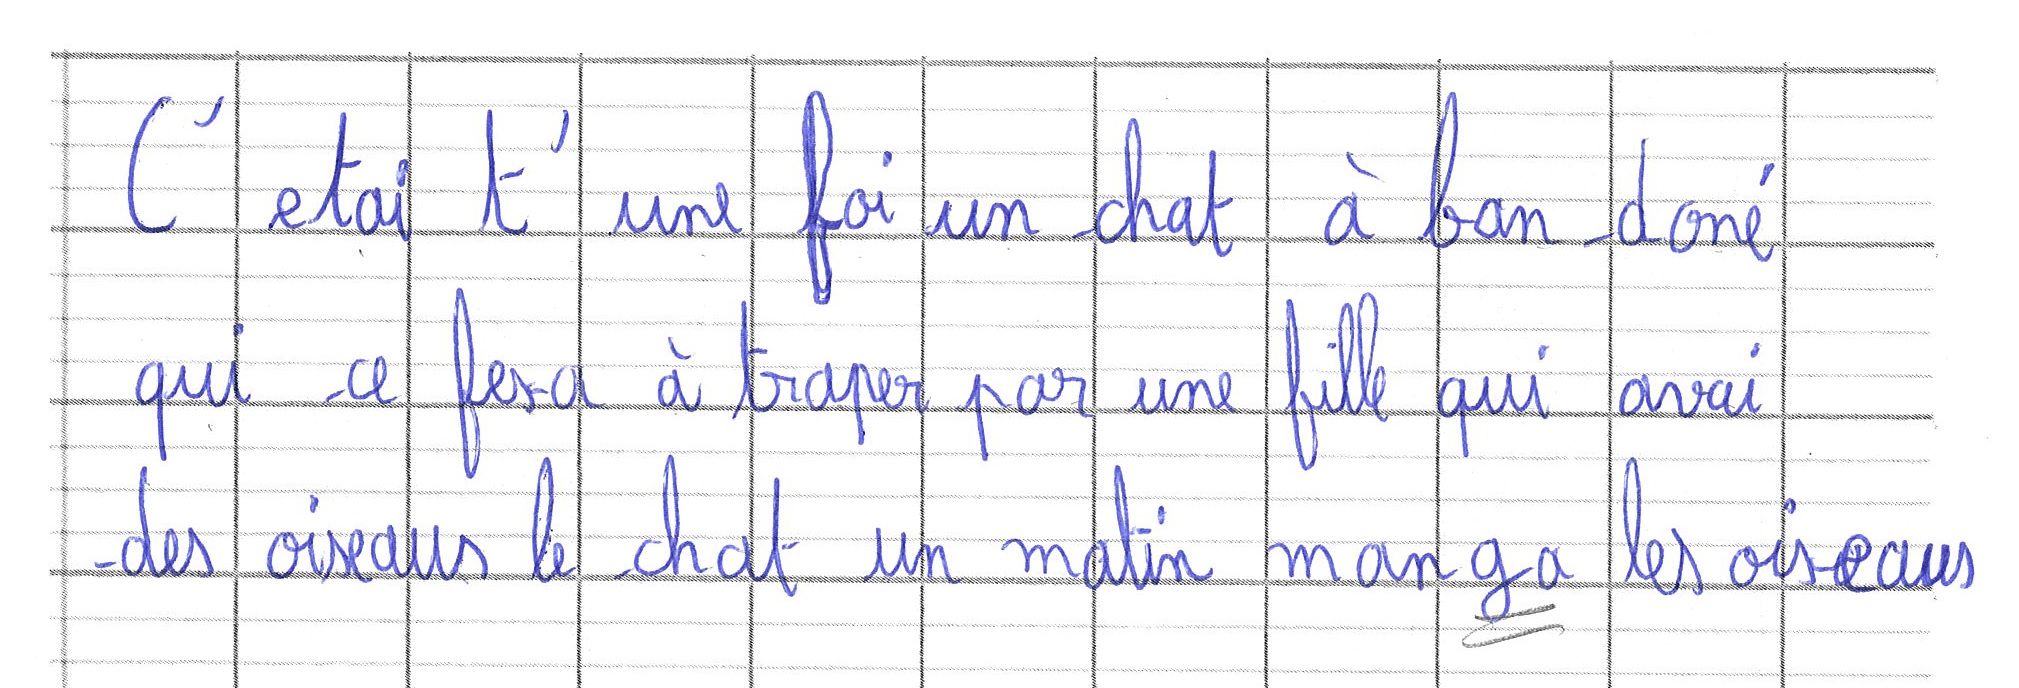 C' etai t' une foi un chat à ban doné
qui ce fesa à traper par une fille qui avai
des oiseaus le chat un matin manga les oiseaus